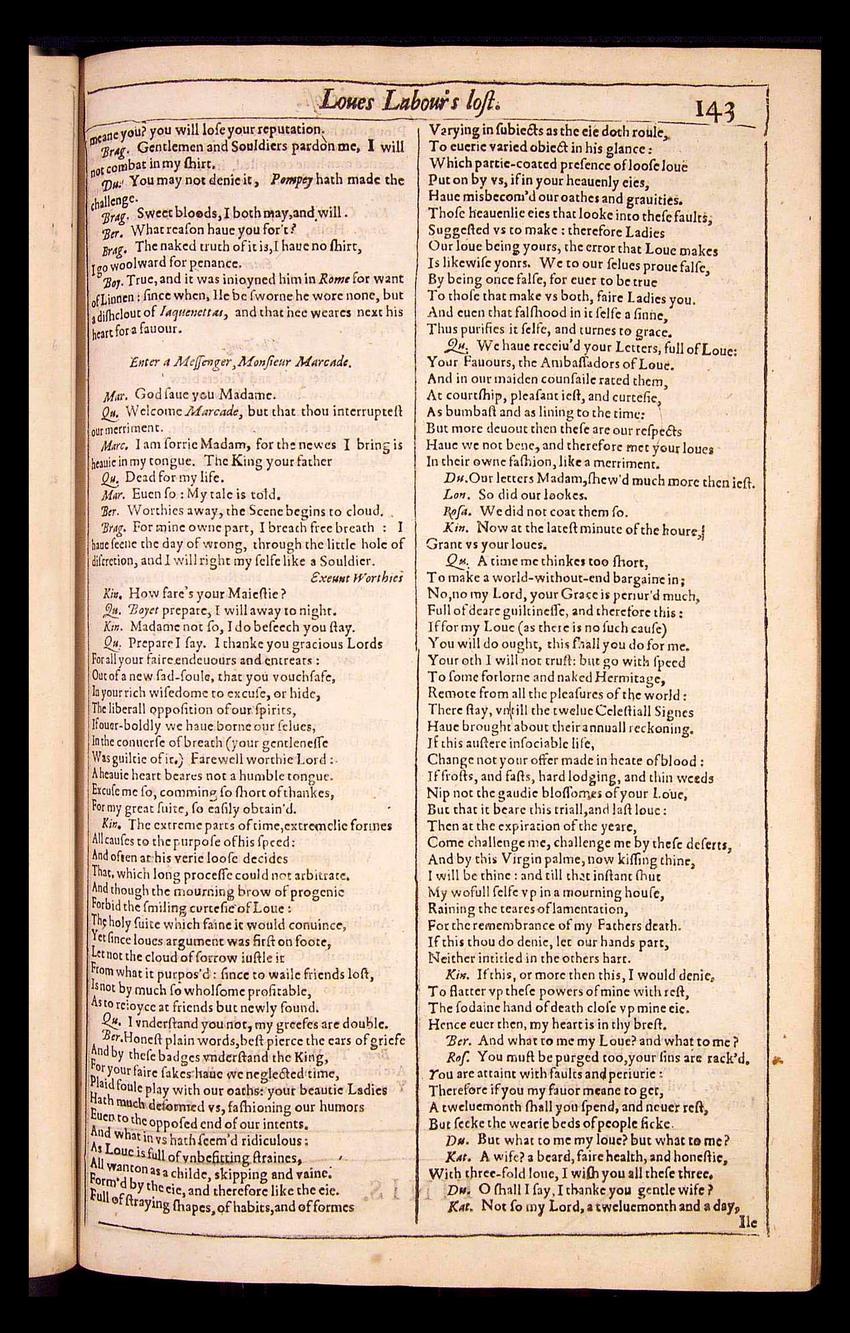 Loues Labour's lost.
143
meane you? you will lose your reputation.
Brag. Gentlemen and Souldiers pardon me, I will
not combat in my shirt.
Du. You may not denie it, Pompey hath made the
challenge.
Brag. Sweet bloods, I both may, and will.
Ber. What reason haue you for't?
Brag. The naked truth of it is, I haue no shirt,
I go woolward for penance.
Boy. True, and it was inioyned him in Rome for want
of Linnen: since when, Ile be sworne he wore none, but
a dishclout of Iaquenettas, and that hee weares next his
heart for a fauour.
Enter a Messenger, Monsieur Marcade.
Mar. God saue you Madame.
Qu. Welcome Marcade, but that thou interruptest
our merriment.
Marc. I am sorrie Madam, for the newes I bring is
heauie in my tongue. The King your father
Qu. Dead for my life.
Mar. Euen so: My tale is told.
Ber. Worthies away, the Scene begins to cloud.
Brag. For mine owne part, I breath free breath: I
haue seene the day of wrong, through the little hole of
discretion, and I will right my selfe like a Souldier.
Exeunt Worthies
Kin. How fare's your Maiestie?
Qu. Boyet prepare, I will away to night.
Kin. Madame not so, I do beseech you stay.
Qu. Prepare I say. I thanke you gracious Lords
For all your faire endeuours and entreats:
Out of a new sad-soule, that you vouchsafe,
In your rich wisedome to excuse, or hide,
The liberall opposition of our spirits,
If ouer-boldly we haue borne our selues,
In the conuerse of breath (your gentlenesse
Was guiltie of it.) Farewell worthie Lord:
A heauie heart beares not a humble tongue.
Excuse me so, comming so short of thankes,
For my great suite, so easily obtain'd.
Kin. The extreme parts of time, extremelie formes
All causes to the purpose of his speed:
And often at his verie loose decides
That, which long processe could not arbitrate.
And though the mourning brow of progenie
Forbid the smiling curtesie of Loue:
The holy suite which faine it would conuince,
Yet since loues argument was first on foote,
Let not the cloud of sorrow iustle it
From what it purpos'd: since to waile friends lost,
Is not by much so wholsome profitable,
As to reioyce at friends but newly found.
Qu. I vnderstand you not, my greefes are double.
Ber. Honest plain words, best pierce the ears of griefe
And by these badges vnderstand the King,
For your faire sakes haue we neglected time,
Plaid foule play with our oaths: your beautie Ladies
Hath much deformed vs, fashioning our humors
Euen to the opposed end of our intents.
And what in vs hath seem'd ridiculous:
As Loue is full of vnbefitting straines,
All wanton as a childe, skipping and vaine.
Form'd by the eie, and therefore like the eie.
Full of straying shapes, of habits, and of formes
Varying in subiects as the eie doth roule,
To euerie varied obiect in his glance:
Which partie-coated presence of loose loue
Put on by vs, if in your heauenly eies,
Haue misbecom'd our oathes and grauities.
Those heauenlie eies that looke into these faults,
Suggested vs to make: therefore Ladies
Our loue being yours, the error that Loue makes
Is likewise yours. We to our selues proue false,
By being once false, for euer to be true
To those that make vs both, faire Ladies you.
And euen that falshood in it selfe a sinne,
Thus purifies it selfe, and turnes to grace.
Qu. We haue receiu'd your Letters, full of Loue:
Your Fauours, the Ambassadors of Loue.
And in our maiden counsaile rated them,
At courtship, pleasant iest, and curtesie,
As bumbast and as lining to the time:
But more deuout then these are our respects
Haue we not bene, and therefore met your loues
In their owne fashion, like a merriment.
Du. Our letters Madam, shew'd much more then iest.
Lon. So did our lookes.
Rosa. We did not coat them so.
Kin. Now at the latest minute of the houre,
Grant vs your loues.
Qu. A time me thinkes too short,
To make a world-without-end bargaine in;
No, no my Lord, your Grace is periur'd much,
Full of deare guiltinesse, and therefore this:
If for my Loue (as there is no such cause)
You will do ought, this shall you do for me.
Your oth I will not trust: but go with speed
To some forlorne and naked Hermitage,
Remote from all the pleasures of the world:
There stay, vntill the twelue Celestiall Signes
Haue brought about their annuall reckoning.
If this austere insociable life,
Change not your offer made in heate of blood:
If frosts, and fasts, hard lodging, and thin weeds
Nip not the gaudie blossomes of your Loue,
But that it beare this triall, and last loue:
Then at the expiration of the yeare,
Come challenge me, challenge me by these deserts,
And by this Virgin palme, now kissing thine,
I will be thine: and till that instant shut
My wofull selfe vp in a mourning house,
Raining the teares of lamentation,
For the remembrance of my Fathers death.
If this thou do denie, let our hands part,
Neither intitled in the others hart.
Kin. If this, or more then this, I would denie,
To flatter vp these powers of mine with rest,
The sodaine hand of death close vp mine eie.
Hence euer then, my heart is in thy brest.
Ber. And what to me my Loue? and what to me?
Ros. You must be purged too, your sins are rack'd.
You are attaint with faults and periurie:
Therefore if you my fauor meane to get,
A tweluemonth shall you spend, and neuer rest,
But seeke the wearie beds of people sicke.
Du. But what to me my loue? but what to me?
Kat. A wife? a beard, faire health, and honestie,
With three-fold loue, I wish you all these three.
Du. O shall I say, I thanke you gentle wife?
Kat. Not so my Lord, a tweluemonth and a day,
Ile